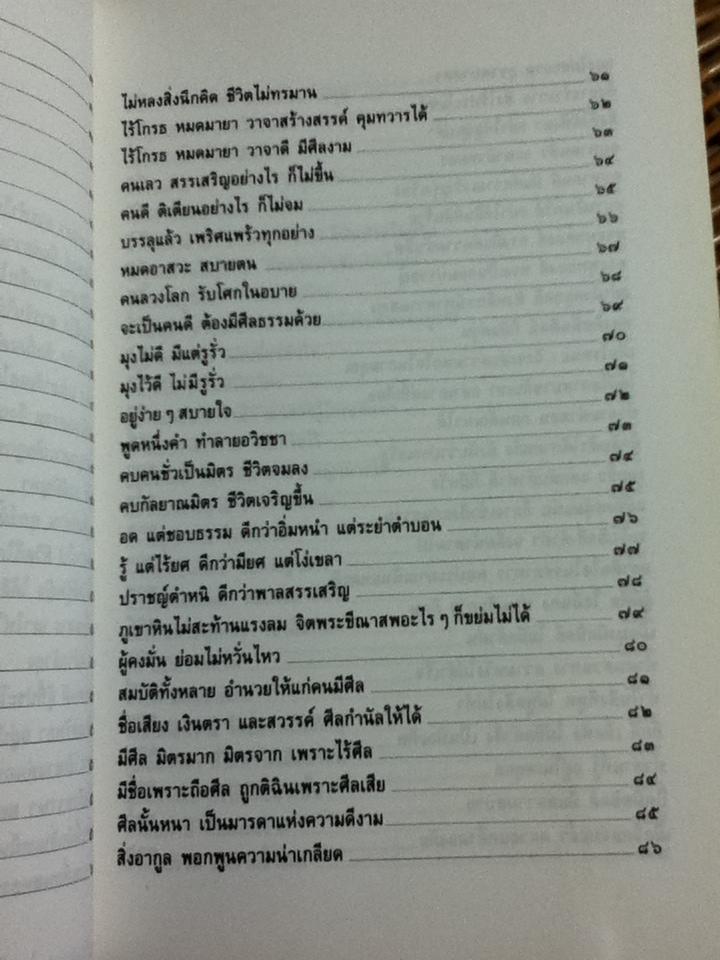 ไม่หลงสิ่งนึกคิด ชีวิตไม่ทรมาน ๖๑
ไร้โกรธ หมดมายา วาจาสร้างสรรค์ คุมทวารได้ ๖๒
ไร้โกรธ หมดมายา วาจาดี มีศีลงาม ๖๓
คนเลว สรรเสริญอย่างไร ก็ไม่ขึ้น ๖๔
คนดี ติเตียนอย่างไร ก็ไม่จม ๖๕
บรรลุแล้ว เพริศแพร้วทุกอย่าง ๖๖
หมดอาสวะ สบายตน ๖๗
คนลวงโลก รับโศกในอบาย ๖๘
จะเป็นคนดี ต้องมีศีลธรรมด้วย ๖๙
มุงไม่ดี มีแต่รูรั่ว ๗๐
มุงไว้ดี ไม่มีรูรั่ว ๗๑
อยู่ง่าย ๆ สบายใจ ๗๒
พูดหนึ่งคำ ทำลายอวิชชา ๗๓
คบคนชั่วเป็นมิตร ชีวิตจมลง ๗๔
คบกัลยาณมิตร ชีวิตเจริญขึ้น ๗๕
อด แต่ชอบธรรม ดีกว่าอิ่มหนำ แต่ระยำตำบอน ๗๖
รู้ แต่ไร้ยศ ดีกว่ามียศ แต่โง่เขลา ๗๗
ปราชญ์ตำหนิ ดีกว่าพาลสรรเสริญ ๗๘
ภูเขาหินไม่สะท้านแรงลม จิตพระขีณาสพอะไร ๆ ก็ขย่มไม่ได้ ๗๙
ผู้คงมั่น ย่อมไม่หวั่นไหว ๘๐
สมบัติทั้งหลาย อำนวยให้แก่คนมีศีล ๘๑
ชื่อเสียง เงินตรา และสวรรค์ ศีลกำนัลให้ได้ ๘๒
มีศีล มิตรมาก มิตรจาก เพราะไร้ศีล ๘๓
มีชื่อเพราะถือศีล ถูกติฉินเพราะศีลเสีย ๘๔
ศีลนั้นหนา เป็นมารดาแห่งความดีงาม ๘๕
สิ่งอากูล พอกพูนความน่าเกลียด ๘๖